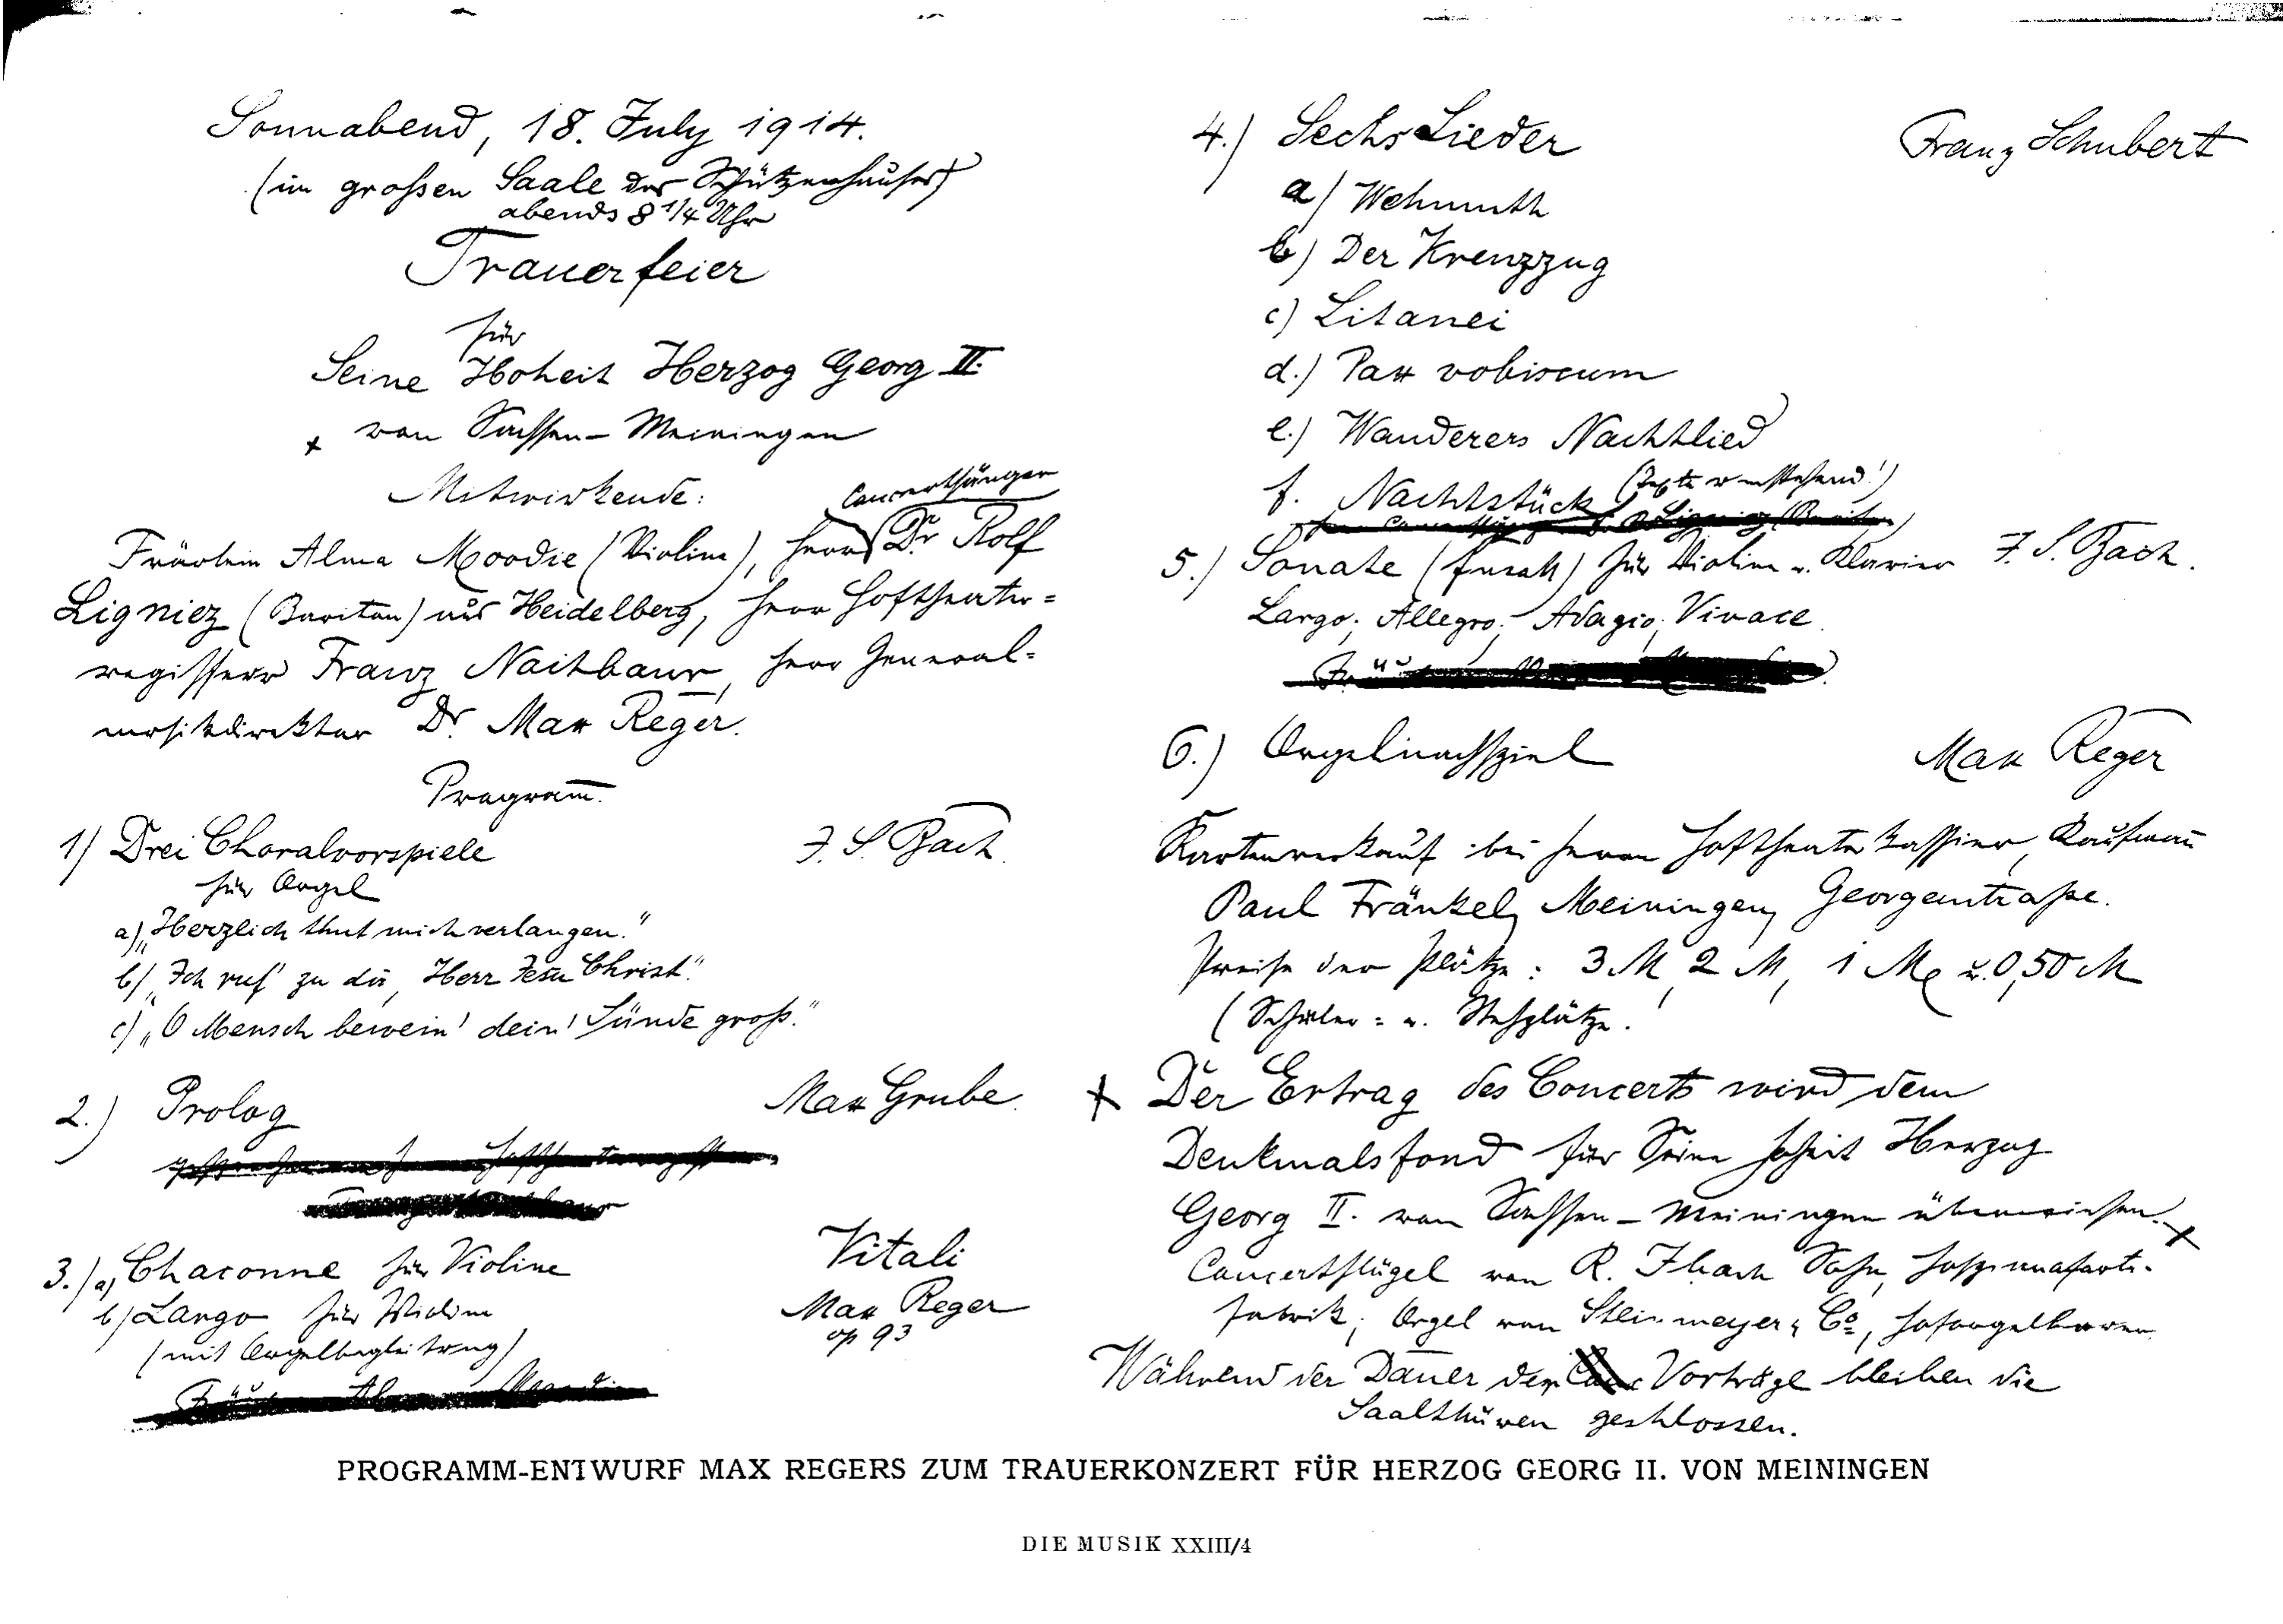 Sonnabend, 18. July 1914.
(im großen Saale des Schützenhauses)
abends 8 1/4 Uhr
Trauerfeier
für
Seine Hoheit Herzog Georg II.
+ von Sachsen-Meiningen
Mitwirkende:
Concertsänger
Fräulein Alma Moodie (Violine), Herr Dr Rolf
Ligniez (Bariton) aus Heidelberg, Herr Hoftheater=
regisseur Franz Nachbaur, Herr General=
musikdirektor Dr. Max Reger.
Program̅.
1) Drei Choralvorspiele J. S. Bach.
für Orgel
a) „Herzlich thut mich verlangen."
b) „Ich ruf' zu dir, Herr Jesu Christ"
c) „O Mensch bewein' dein' Sünde groß."
2.) Prolog Max Grube.
3.) a) Chaconne für Violine Vitali
b) Largo für Violine Max Reger
(mit Orgelbegleitung) op 93
4.) Sechs Lieder Franz Schubert
a) Wehmuth
b) Der Kreuzzug
c) Litanei
d.) Pax vobiscum
e.) Wanderers Nachtlied
f. Nachtstück (Texte umstehend!)
5.) Sonate (fmoll) für Violine u. Klavier J. S. Bach.
Largo; Allegro; Adagio; Vivace.
6.) Orgelnachspiel Max Reger
Kartenverkauf bei Herrn Hoftheaterkassier, Kaufman̅
Paul Fränkel, Meiningen, Georgenstraße.
Preise der Plätze: 3 M, 2 M, 1 M, u. 0,50 M
(Schüler= u. Stehplätze.
+ Der Ertrag des Concerts wird dem
Denkmalsfond für Seine Hoheit Herzog
Georg II. von Sachsen-Meiningen überwiesen. +
Concertflügel von R. Ibach Sohn, Hofpianoforte-
fabrik; Orgel von Steinmeyer & Co, Hoforgelbauer
Während der Dauer der Vorträge bleiben die
Saalthüren geschlossen.
PROGRAMM-ENTWURF MAX REGERS ZUM TRAUERKONZERT FÜR HERZOG GEORG II. VON MEININGEN
DIE MUSIK XXIII/4